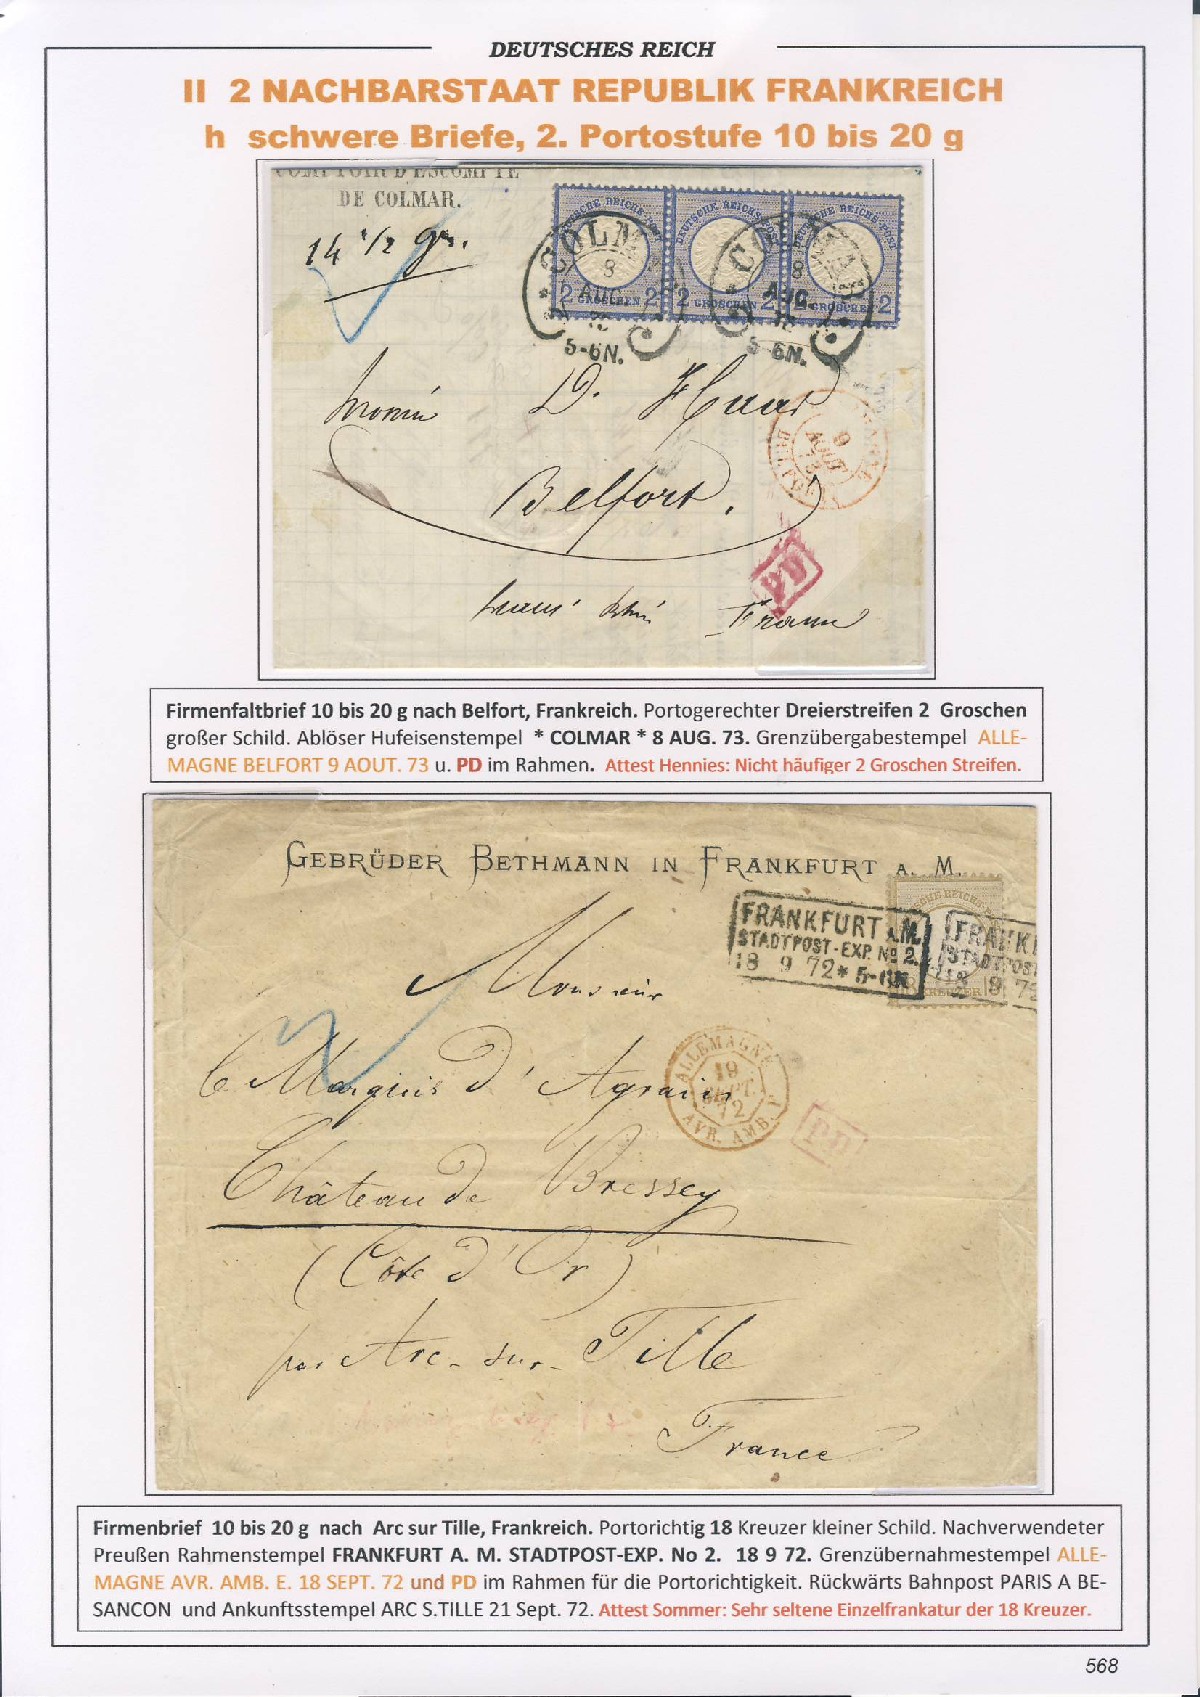 DEUTSCHES REICH
II 2 NACHBARSTAAT REPUBLIK FRANKREICH
h schwere Briefe, 2. Portostufe 10 bis 20 g
COMPTOIR D'ESCOMPTE
DE COLMAR.
14 1/2 gr.
DEUTSCHE REICHS-POST
2 GROSCHEN 2
2 GROSCHEN 2
GROSCHEN 2
* COLM
8
AUG.
5-6N.
* CO
8
AUG.
5-6N.
D. Haas
Belfort.
9
AOUT
PD
France
Firmenfaltbrief 10 bis 20 g nach Belfort, Frankreich. Portogerechter Dreierstreifen 2 Groschen
großer Schild. Ablöser Hufeisenstempel * COLMAR * 8 AUG. 73. Grenzübergabestempel ALLE-
MAGNE BELFORT 9 AOUT. 73 u. PD im Rahmen. Attest Hennies: Nicht häufiger 2 Groschen Streifen.
GEBRÜDER BETHMANN IN FRANKFURT A. M.
FRANKFURT A.M.
STADTPOST-EXP. No 2.
18 9 72 * 5-6N
FRANK
STADTPOST
18 9 72
KREUZER
Monsieur
le Marquis d'Agrain
ALLEMAGNE
19
SEPT.
72
AVR. AMB.
PD
Château de Bressey
(Côte d'Or)
par Arc-sur-Tille
France
Firmenbrief 10 bis 20 g nach Arc sur Tille, Frankreich. Portorichtig 18 Kreuzer kleiner Schild. Nachverwendeter
Preußen Rahmenstempel FRANKFURT A. M. STADTPOST-EXP. No 2. 18 9 72. Grenzübernahmestempel ALLE-
MAGNE AVR. AMB. E. 18 SEPT. 72 und PD im Rahmen für die Portorichtigkeit. Rückwärts Bahnpost PARIS A BE-
SANCON und Ankunftsstempel ARC S.TILLE 21 Sept. 72. Attest Sommer: Sehr seltene Einzelfrankatur der 18 Kreuzer.
568